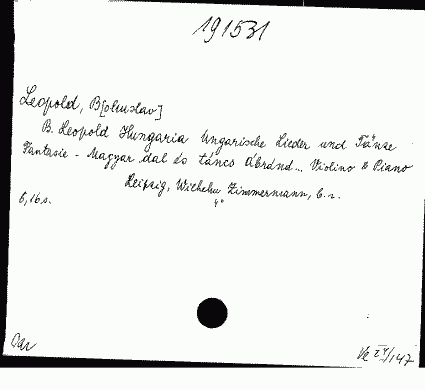 191531
Leopold, B[ohuslav]
B. Leopold Hungaria Ungarische Lieder und Tänze
Fantasie - Magyar dal és táncs ábránd... Violino & Piano
Leipzig, Wilhelm Zimmermann, b.r.
4°
5, 16 s.
Car